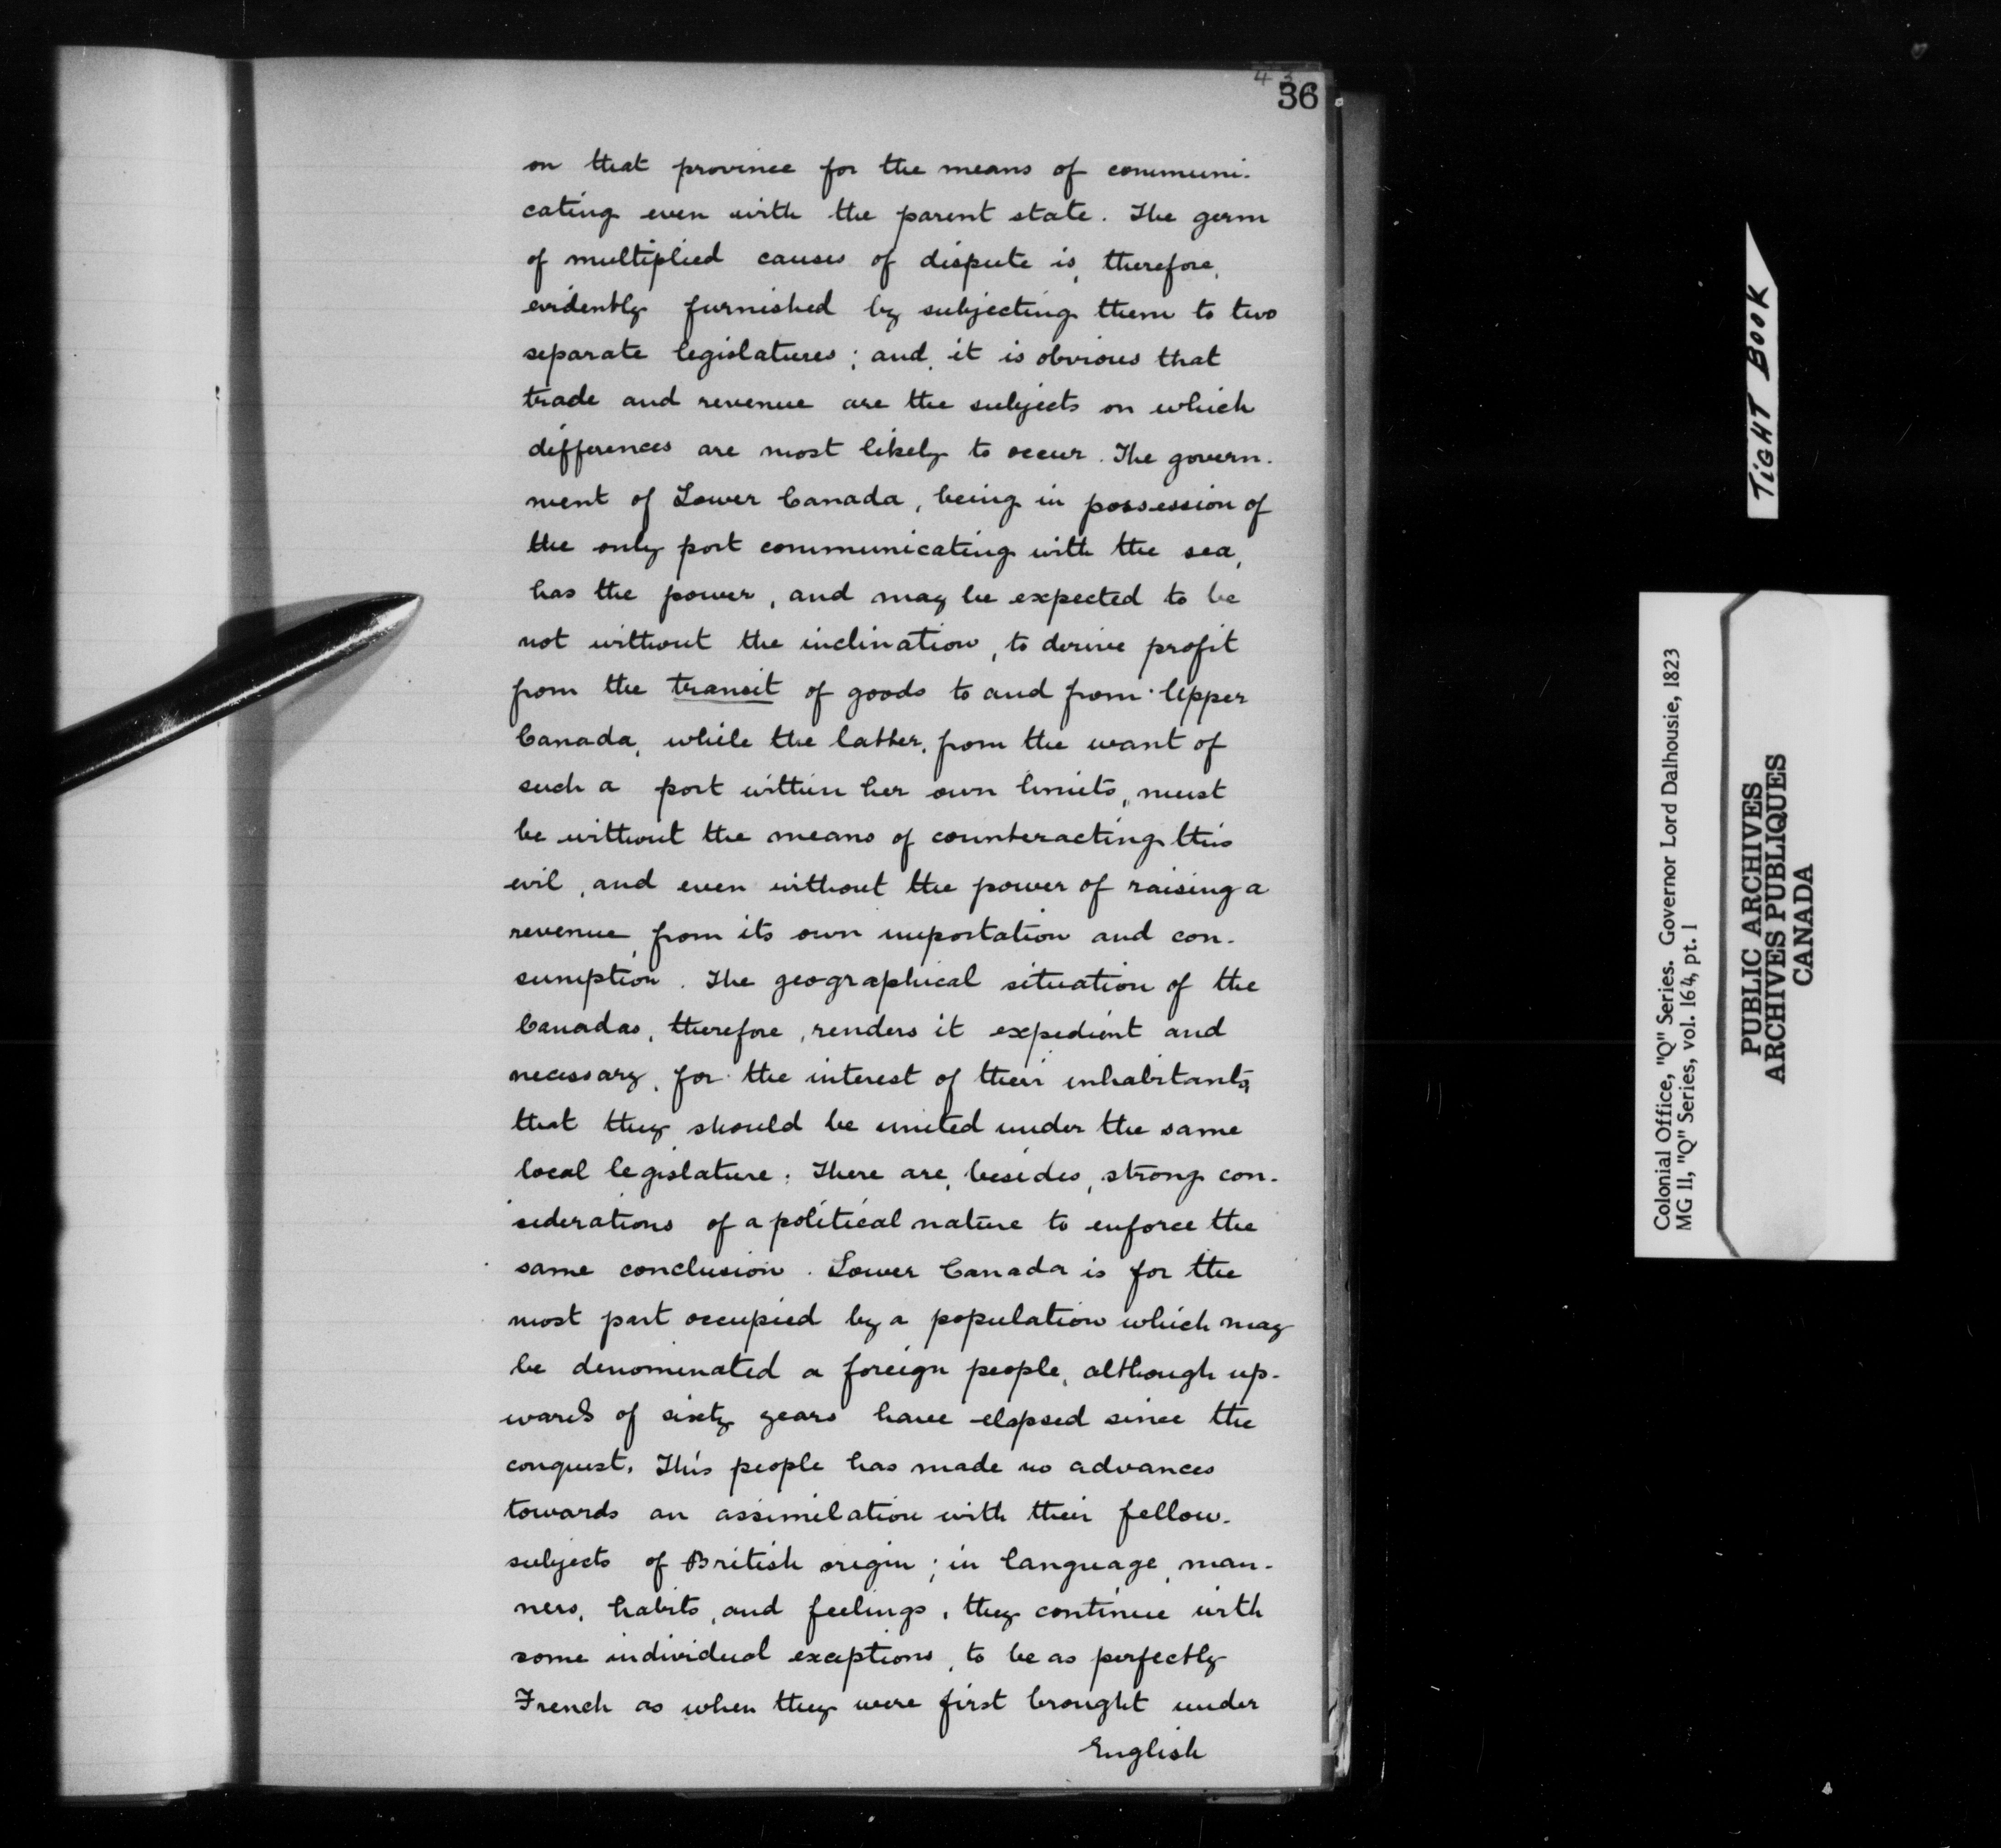 43
36
on that province for the means of communi-
cating even with the parent state. The germ
of multiplied causes of dispute is, therefore,
evidently furnished by subjecting them to two
separate legislatures; and, it is obvious that
trade and revenue are the subjects on which
differences are most likely to occur. The govern-
ment of Lower Canada, being in possession of
the only port communicating with the sea,
has the power, and may be expected to be
not without the inclination, to derive profit
from the transit of goods to and from Upper
Canada, while the latter, from the want of
such a port within her own limits, must
be without the means of counteracting this
evil, and even without the power of raising a
revenue from its own importation and con-
sumption. The geographical situation of the
Canadas, therefore, renders it expedient and
necessary, for the interest of their inhabitants,
that they should be united under the same
local legislature. There are, besides, strong con-
siderations of a political nature to enforce the
same conclusion. Lower Canada is for the
most part occupied by a population which may
be denominated a foreign people, although up-
wards of sixty years have elapsed since the
conquest. This people has made no advances
towards an assimilation with their fellow-
subjects of British origin; in language, man-
ners, habits, and feelings, they continue with
some individual exceptions, to be as perfectly
French as when they were first brought under
English
TIGHT BOOK
Colonial Office, "Q" Series. Governor Lord Dalhousie, 1823
MG 11, "Q" Series, vol. 164, pt. 1
PUBLIC ARCHIVES
ARCHIVES PUBLIQUES
CANADA